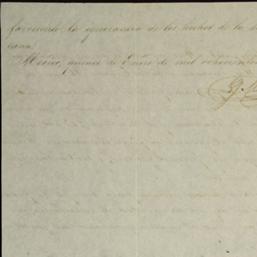 favorecido la generacion de los hechos de la
cana.
Mexico, quince de Enero de mil ochocientos